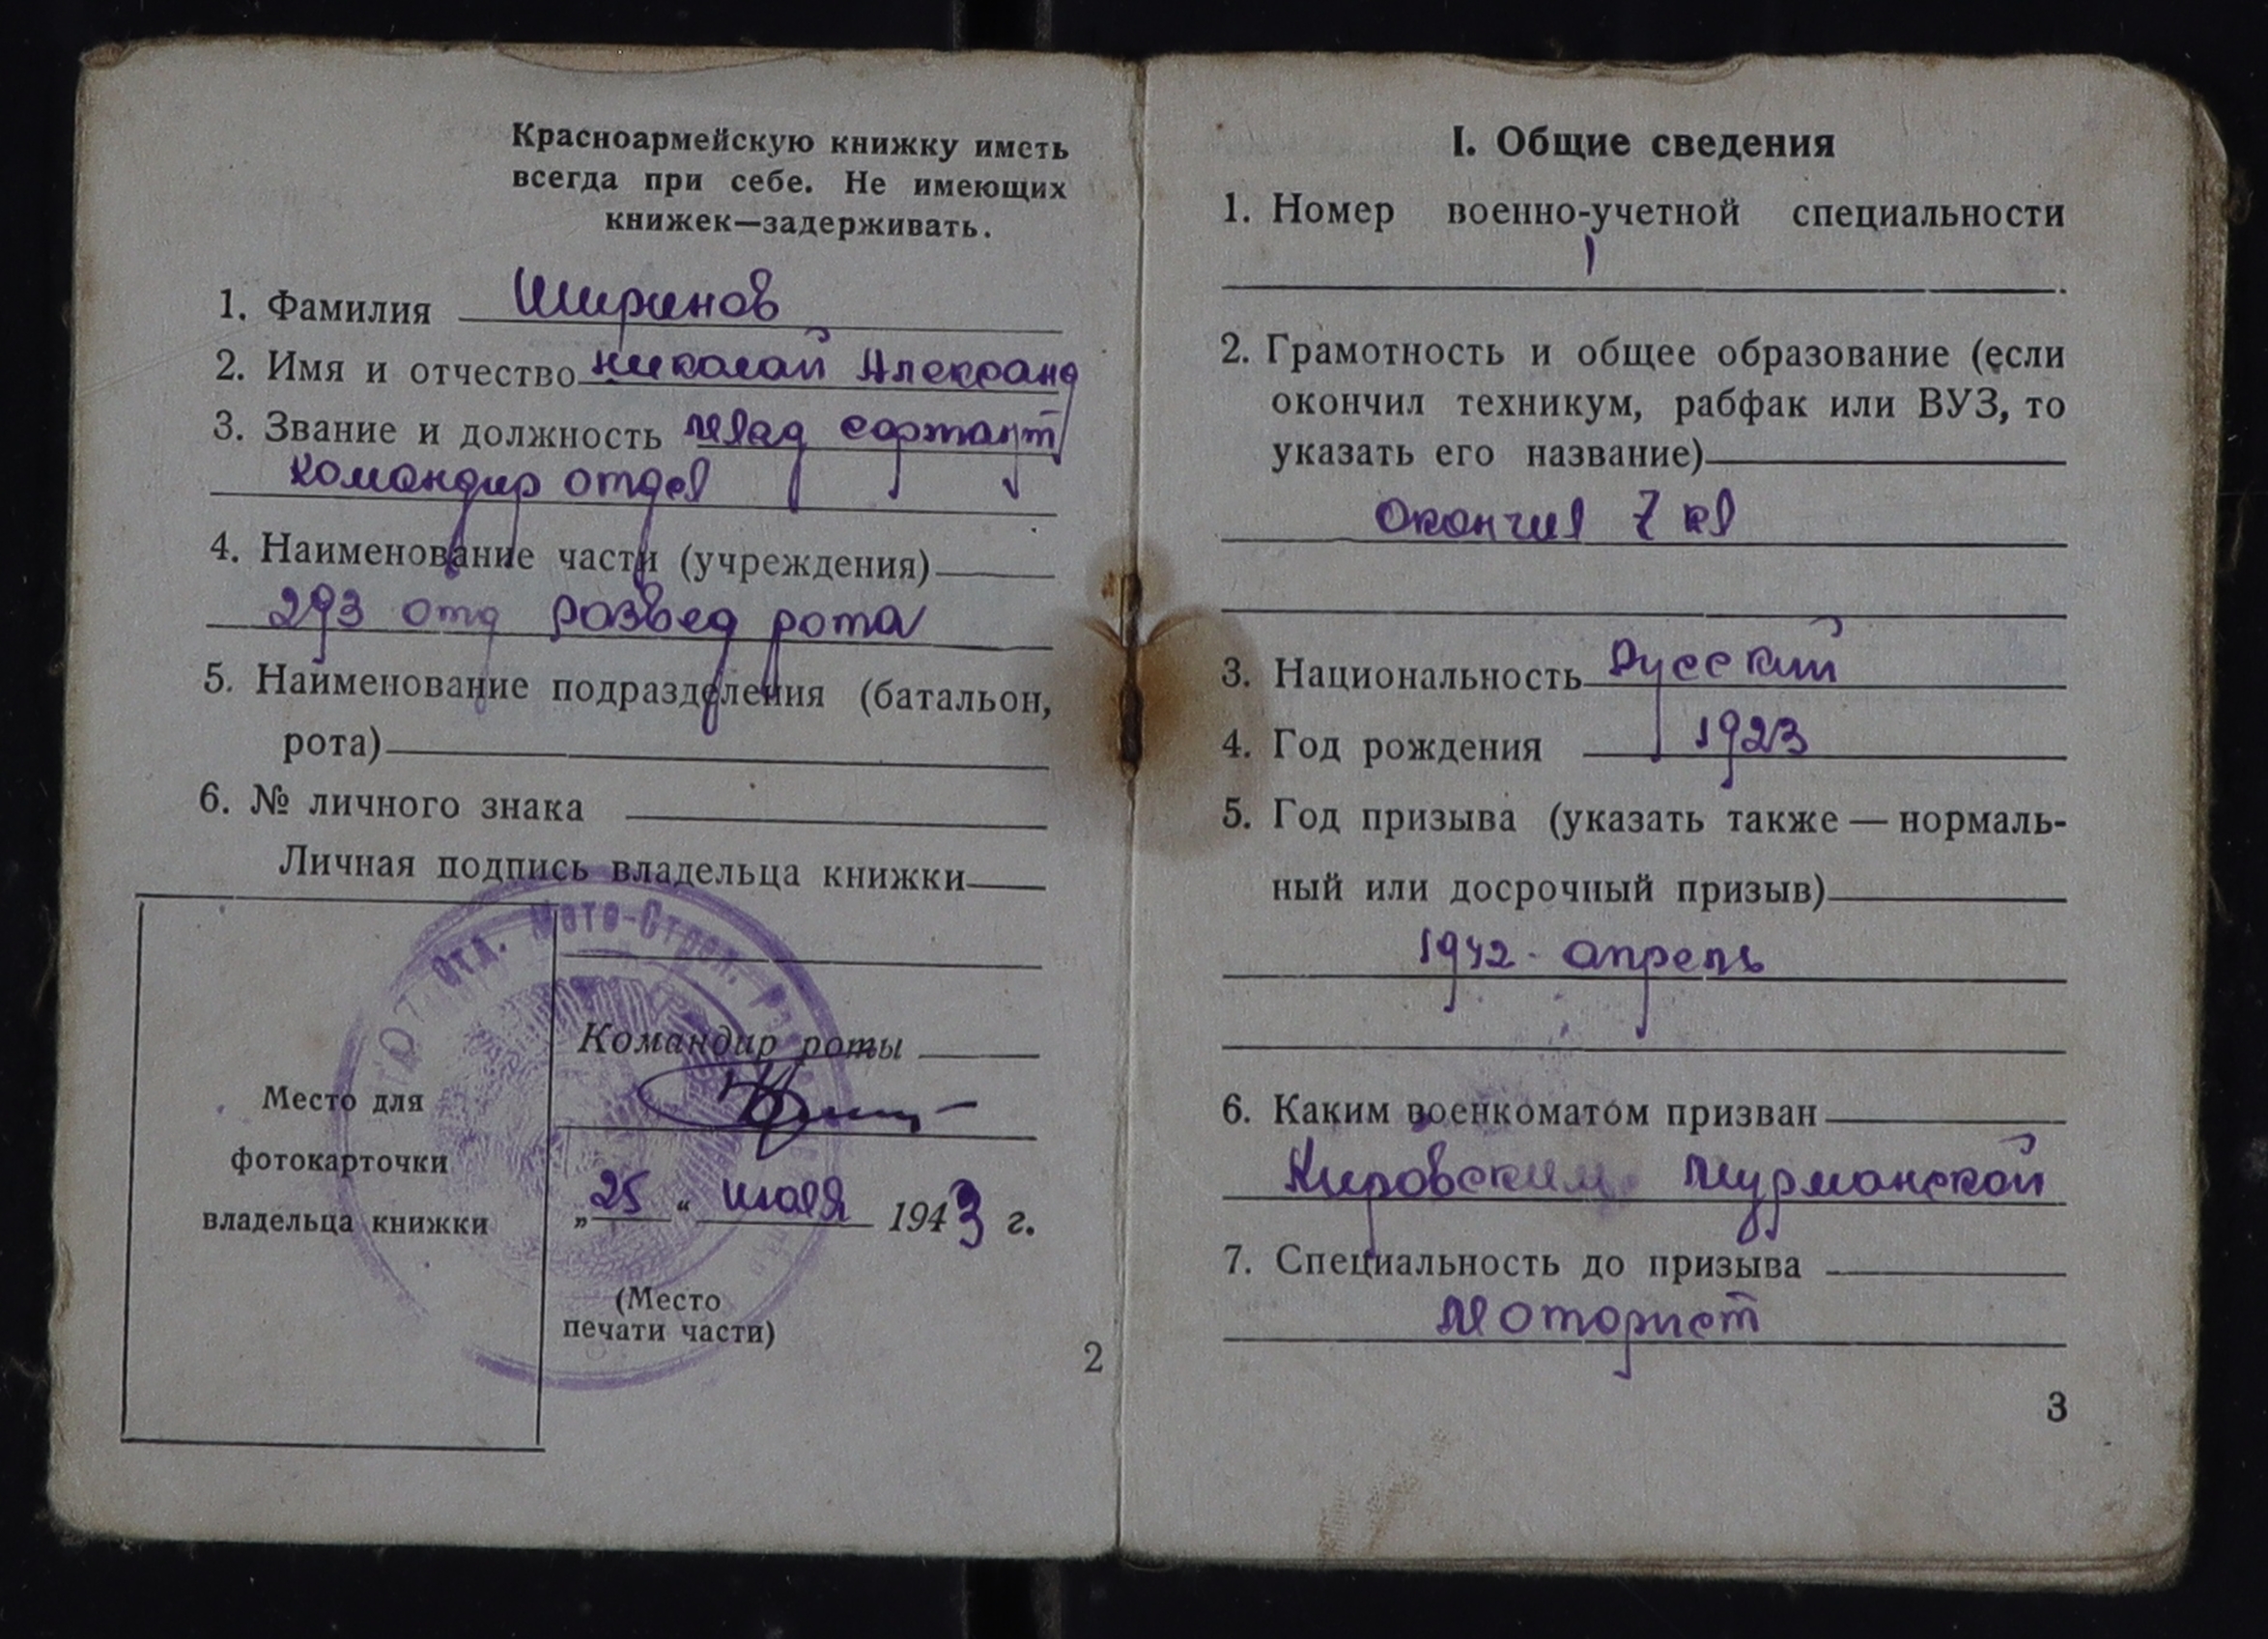 Красноармейскую книжку иметь
всегда при себе. Не имеющих
книжек—задерживать.
1. Фамилия Ширинов
2. Имя и отчество Николай Александ
3. Звание и должность млад сержант
командир отдел
4. Наименование части (учреждения)
293 отд развед рота
5. Наименование подразделения (батальон,
рота)
6. № личного знака
Личная подпись владельца книжки
Отд. Мото-Стрел.
Командир роты
„25“ июля 1943 г.
Место для
фотокарточки
владельца книжки
(Место
печати части)
2
I. Общие сведения
1. Номер военно-учетной специальности
1
2. Грамотность и общее образование (если
окончил техникум, рабфак или ВУЗ, то
указать его название)
Окончил 7 кл
3. Национальность Русский
4. Год рождения 1923
5. Год призыва (указать также — нормаль-
ный или досрочный призыв)
1942 - апрель
6. Каким военкоматом призван
Кировским Мурманской
7. Специальность до призыва
Моторист
3